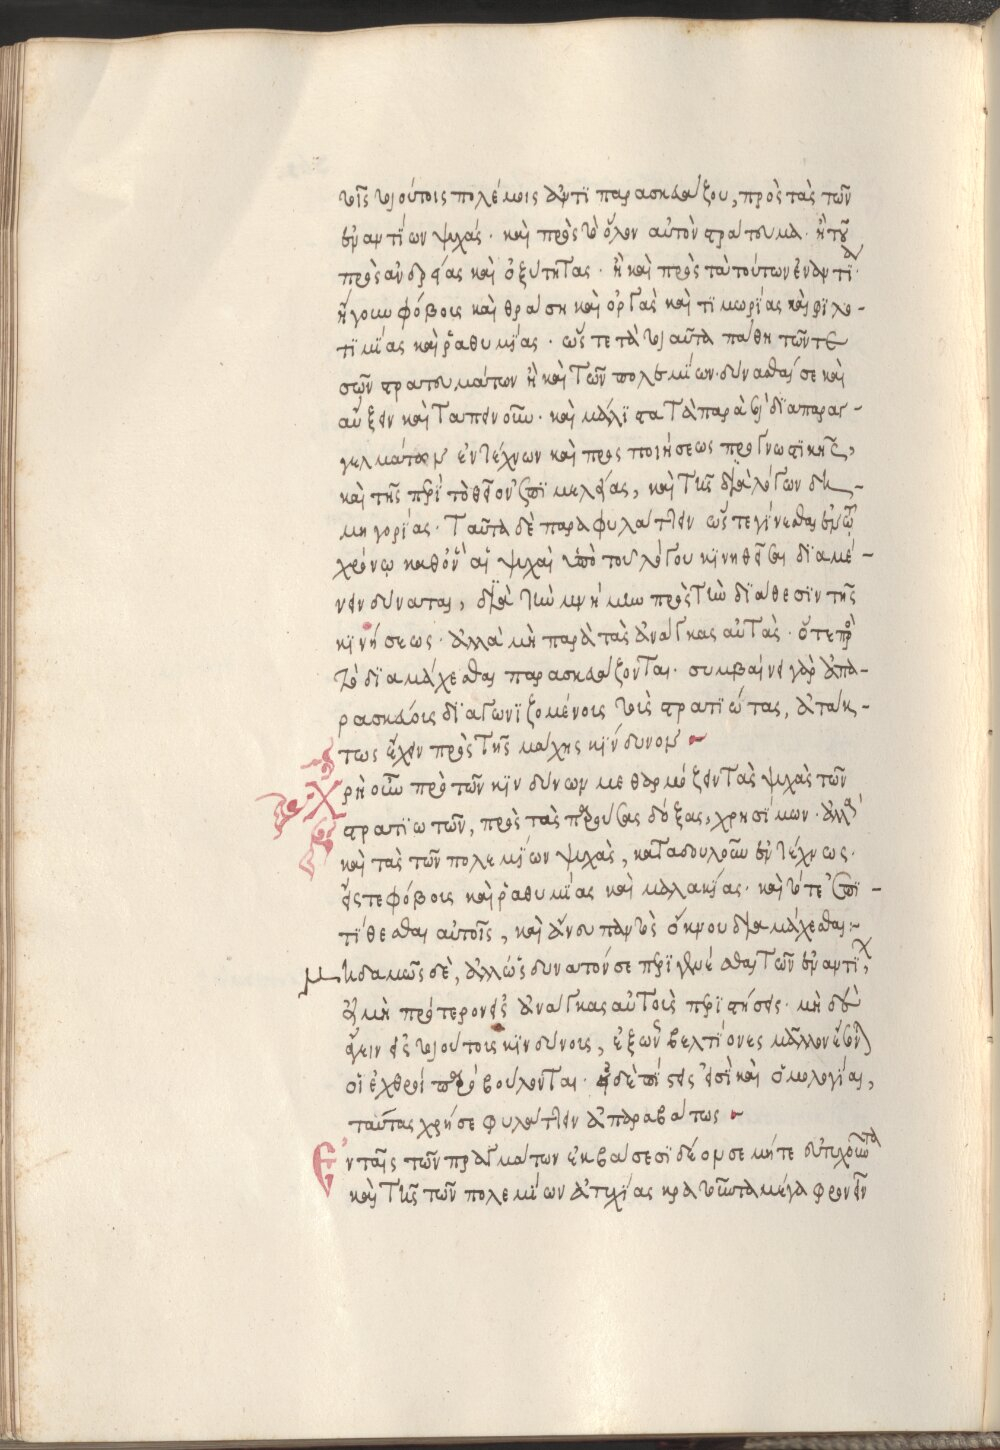 τοῖς τοιούτοις πολέμοις ἀντιπαρασκευάζου, πρὸς τὰς τῶν
ἐναντίων ψυχάς· καὶ πρὸς τὸ ὅλον αὐτὸν στράτευμα· ἤτοι
πρὸς ἀνδρείας καὶ ὀξύτητας· ἢ καὶ πρὸς τὰ τούτων ἐναντία·
ἤγουν φόβοις καὶ θράση καὶ ὀργὰς καὶ τιμωρίας καὶ φιλο-
τιμίας καὶ ῥαθυμίας· ὥστε τὰ τοιαῦτα πάθη τῶν τε
σῶν στρατευμάτων ἢ καὶ τῶν πολεμίων· δύνασθαί σε καὶ
αὔξειν καὶ ταπεινοῦν· καὶ μάλιστα τὰ παρὰ σοῦ διὰ παραγ-
γελμάτων ἐντέχνων καὶ προσποιήσεως προγνωστικῆς,
καὶ τῆς περὶ τὸ θεῖον ἐπιμελείας, καὶ τῆς διὰ λόγων δη-
μηγορίας· ταῦτα δὲ παραφυλάττειν ὥστε γίνεσθαι ἐν ᾧ
χρόνῳ καθ' ὃν αἱ ψυχαὶ ὑπὸ τοῦ λόγου κινηθεῖσαι διαμέ-
νειν δύνανται, διὰ τὴν μνήμην πρὸς τὴν διάθεσιν τῆς
κινήσεως· ἀλλὰ μὴ παρὰ τὰς ἀνάγκας αὐτάς· ὅτε πρὸς
τὸ διαμάχεσθαι παρασκευάζονται· συμβαίνει γὰρ ἀπα-
ρασκεύοις διαγωνιζομένοις τοῖς στρατιώτας, ἀτάκ-
τως ἔχειν πρὸς τῆς μάχης κίνδυνον
Χρὴ οὖν πρὸ τῶν κινδύνων μεθαρμόζειν τὰς ψυχὰς τῶν
στρατιωτῶν, πρὸς τὰς πρεπούσας δόξας, χρησίμων· ἀλλὰ
καὶ τὰς τῶν πολεμίων ψυχάς, καταδουλοῦν ἐντέχνως·
εἴς τε φόβοις καὶ ῥαθυμίας καὶ μαλακίας· καὶ τότε ἐπι-
τίθεσθαι αὐτοῖς, καὶ ἄνευ παντὸς ὄκνου διαμάχεσθαι:-
Μηδαμῶς δέ, ἄλλως δυνατόν σε περιγενέσθαι τῶν ἐναντίων,
εἰ μὴ πρότερον εἰς ἀνάγκας αὐτοὺς περιστήσεις· μὴ δὲ
εἴκειν εἰς τοιούτοις κινδύνοις, ἐξ ὧν βελτίονες μᾶλλον εἶναι
οἱ ἐχθροὶ προβούλονται· εἰ δὲ πίστεις εἰσὶ καὶ ὁμολογίαι,
ταύτας χρή σε φυλάττειν ἀπαραβάτως
Ἐν ταῖς τῶν πραγμάτων ἐκβάσεσι δέον σε μήτε εὐτυχοῦντα
καὶ τῆς τῶν πολεμίων ἀτυχίας κρατοῦντα μέγα φρονεῖν